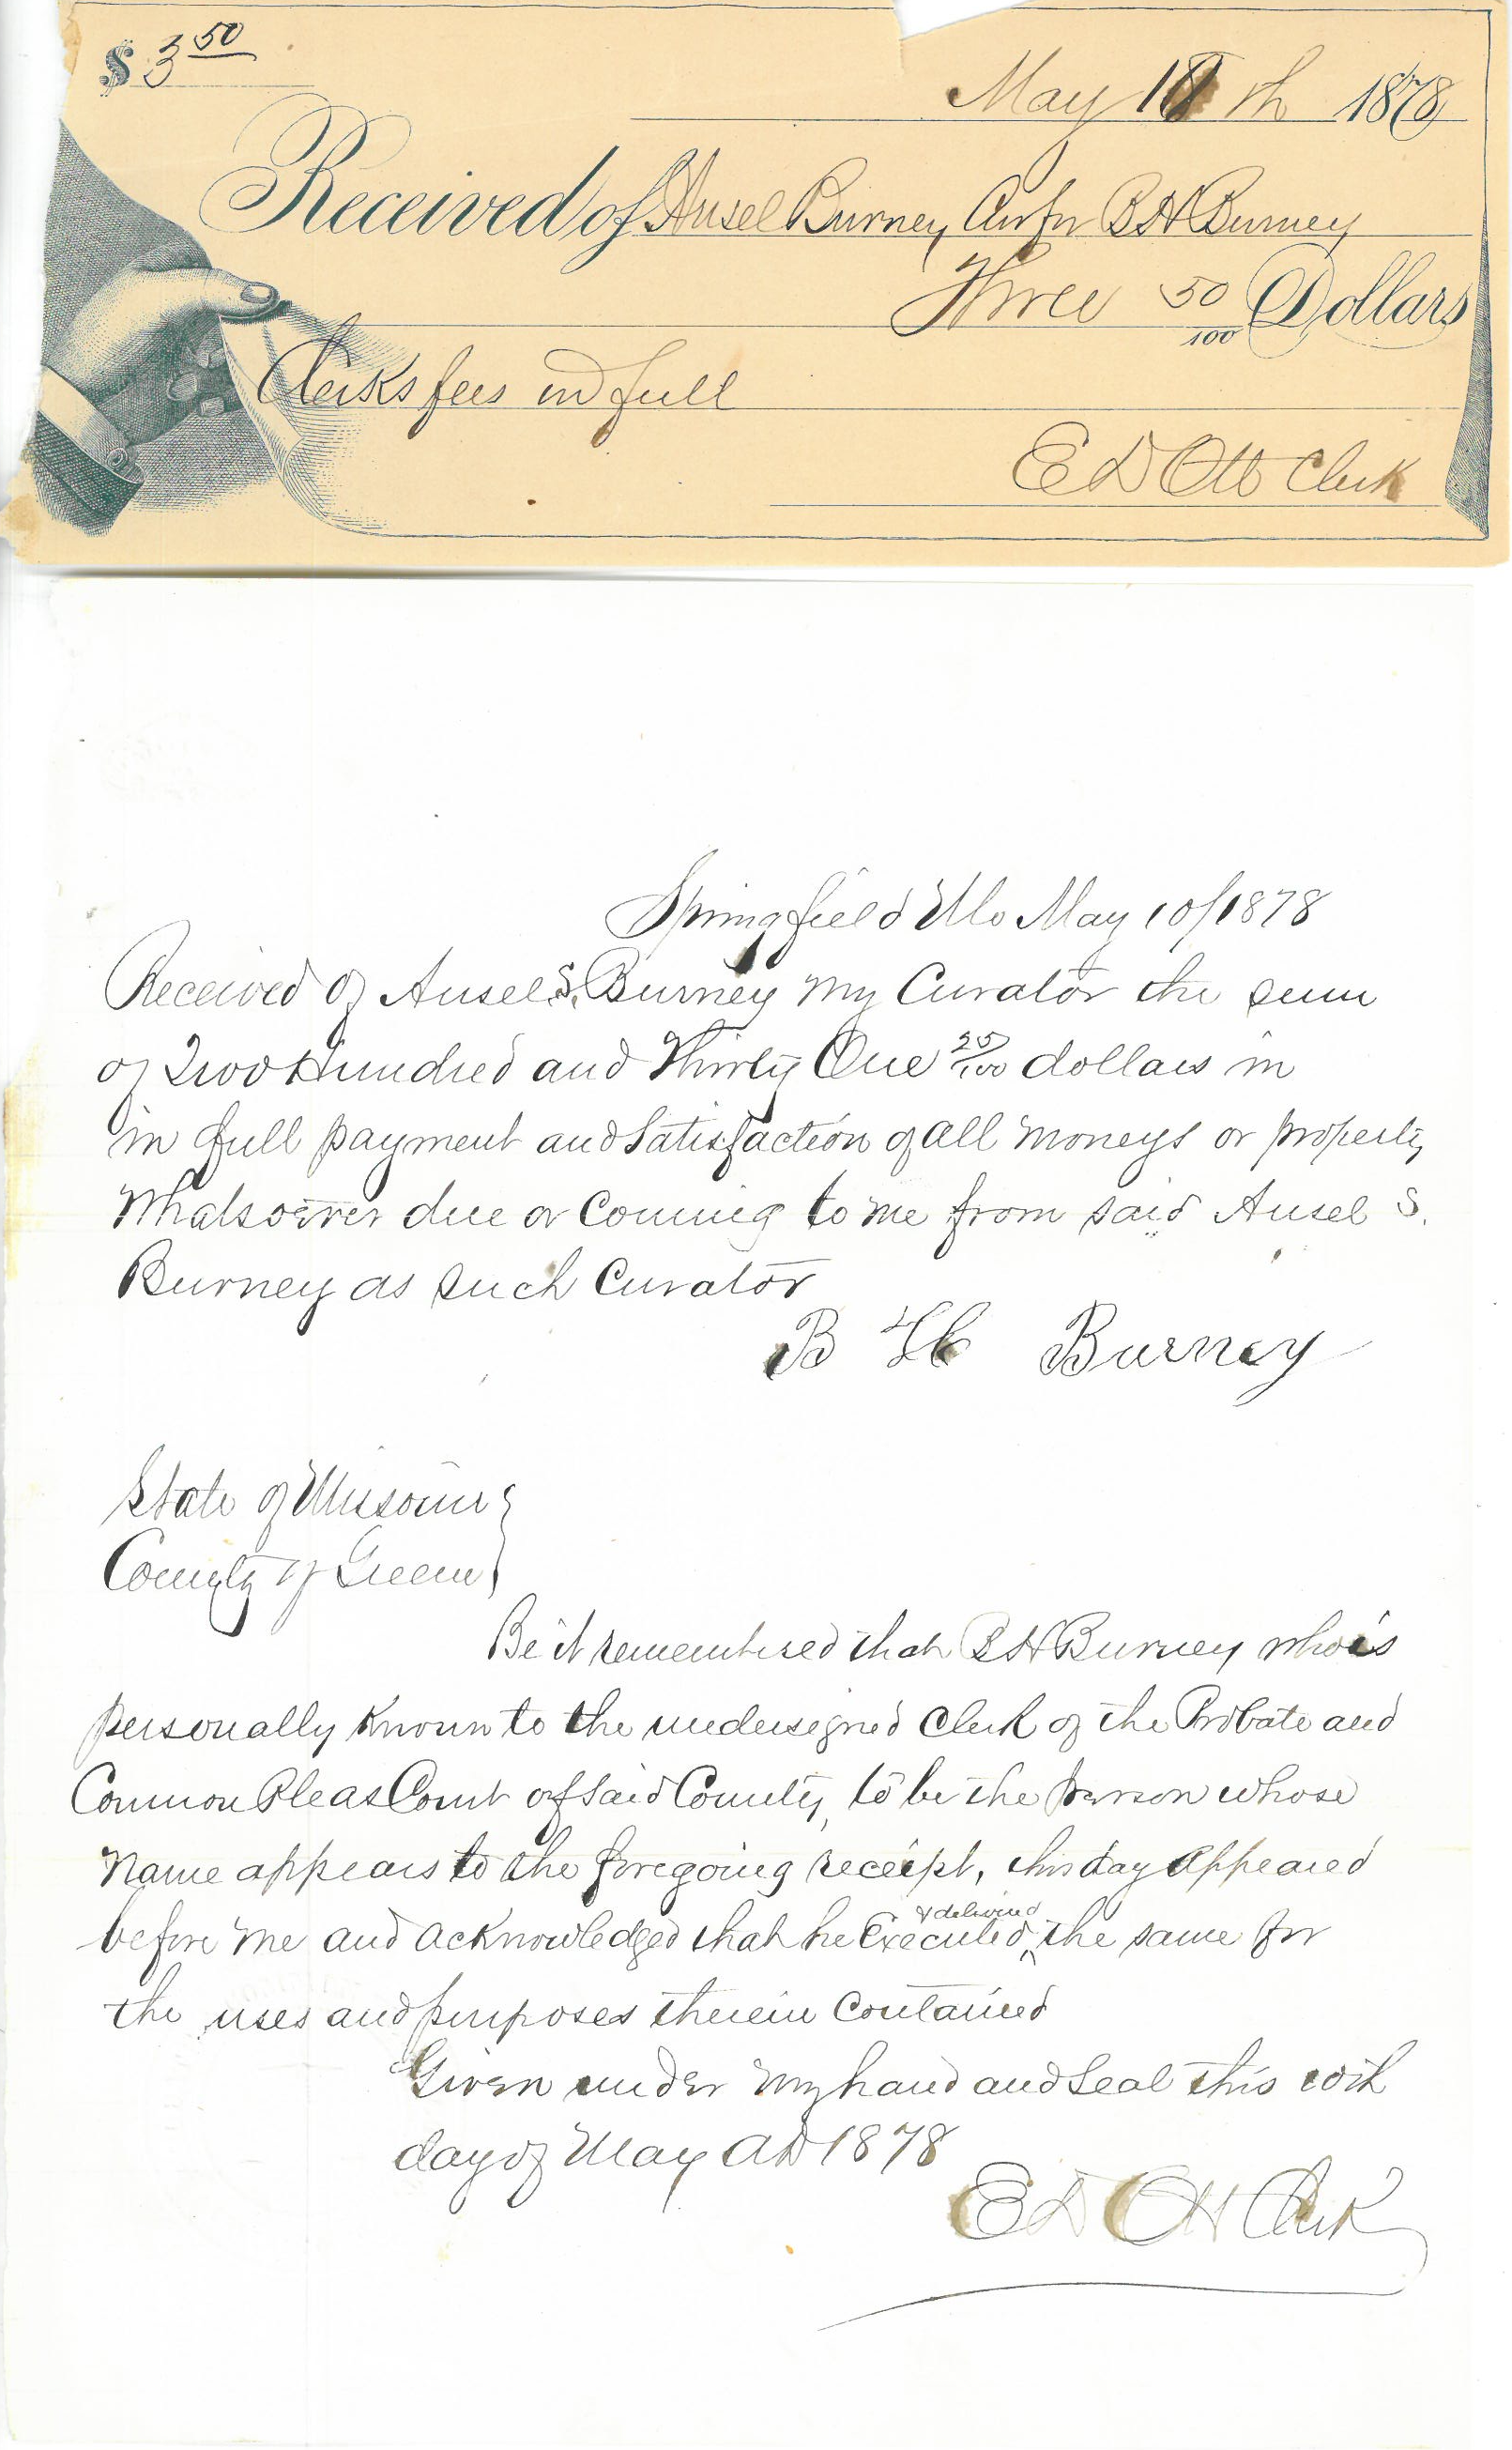 $ 3 50
May 10th 1878
Received of Ansel Burney Cur for B H Burney
Three 50/100 Dollars
Clerks fees in full
E D Ott Clerk
Springfield Mo May 10/1878
Received of Ansel S. Burney my Curator the sum
of Two Hundred and Thirty One 25/100 dollars in
in full payment and Satisfaction of all moneys or property
Whatsoever due or Coming to me from said Ansel S.
Burney as such Curator
B H Burney
State of Missouri
County of Greene
Be it remembered that B H Burney who is
personally known to the undersigned Clerk of the Probate and
Common Pleas Court of said County, to be the person whose
Name appears to the foregoing receipt, this day appeared
before me and acknowledged that he Executed & delivered the same for
the uses and purposes therein Contained
Given under my hand and Seal this 10th
day of May AD 1878
E D Ott Clerk